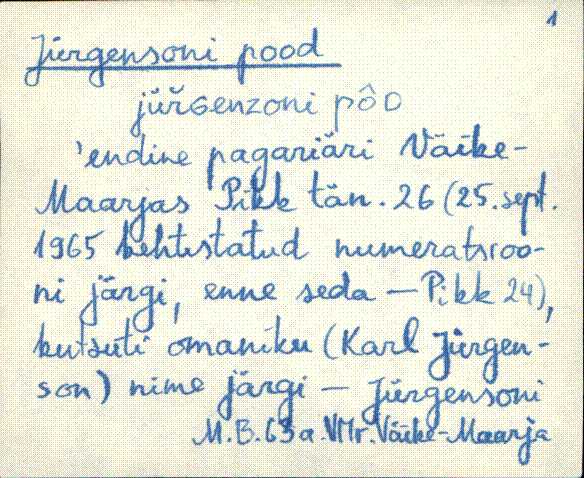 1
Jürgensoni pood
jüřGenzoni pôD
'endine pagariäri Väike-
Maarjas Pikk tän. 26 (25. sept.
1965 kehtestatud numeratsioo-
ni järgi, enne seda — Pikk 24),
kutsuti omaniku (Karl Jürgen-
son) nime järgi — Jürgensoni
M.B. 63 a. VMr. Väike-Maarja